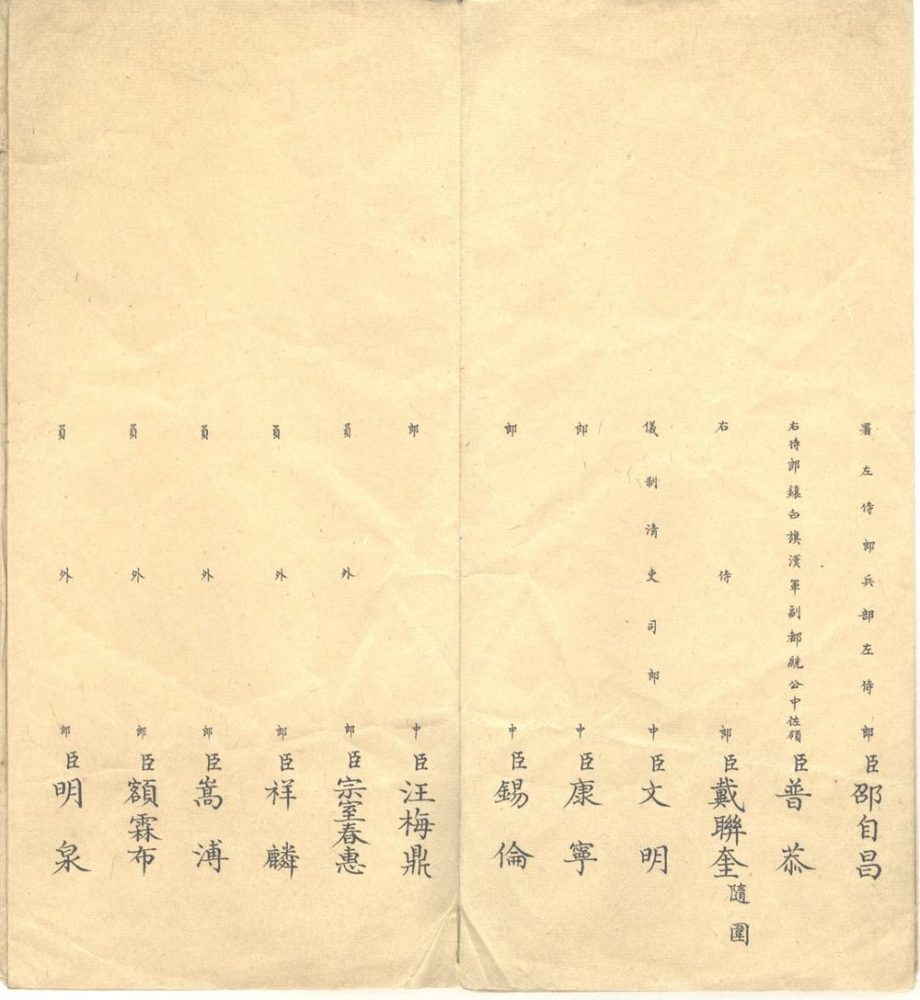 署左侍郎兵部左侍郎臣邵自昌
右侍郎鑲白旗漢軍副都統公中佐領臣普恭
右侍郎臣戴聯奎隨圍
儀制清吏司郎中臣文明
郎中臣康寧
郎中臣錫倫
郎中臣汪梅鼎
員外郎臣宗室春惠
員外郎臣祥麟
員外郎臣嵩溥
員外郎臣額霖布
員外郎臣明泉